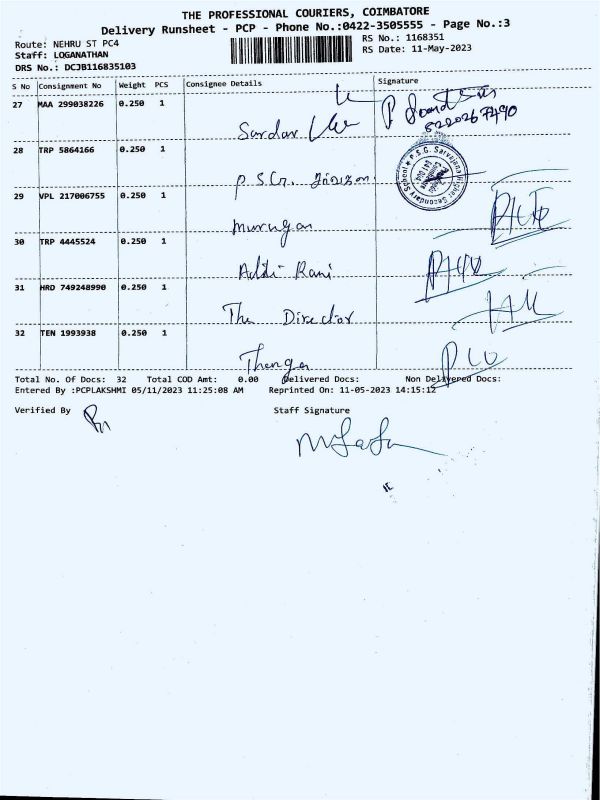 THE PROFESSIONAL COURIERS, COIMBATORE
Delivery Runsheet - PCP - Phone No.:0422-3505555 - Page No.:3
Route: NEHRU ST PC4 RS No.: 1168351
Staff: LOGANATHAN RS Date: 11-May-2023
DRS No.: DCJB116835103
S No Consignment No Weight PCS Consignee Details Signature
27 MAA 299038226 0.250 1
8220267490
Sardar
28 TRP 5864166 0.250 1
P.S.G. Sarvajana Higher Secondary School
P.S.G.
29 VPL 217006755 0.250 1
Murugan
30 TRP 4445524 0.250 1
Rani
31 HRD 749248990 0.250 1
The Director
32 TEN 1993938 0.250 1
Total No. Of Docs: 32 Total COD Amt: 0.00 Delivered Docs: Non Delivered Docs:
Entered By :PCPLAKSHMI 05/11/2023 11:25:08 AM Reprinted On: 11-05-2023 14:15:12
Verified By Staff Signature